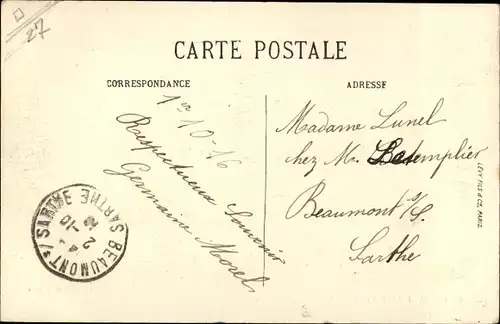 27
CARTE POSTALE
CORRESPONDANCE
ADRESSE
1er 10-16
Respectueux Souvenir
Germaine Morel
Madame Lunel
chez M. Letemplier
Beaumont s/S.
Sarthe
LÉVY FILS & Cie, PARIS
BEAUMONT S/SARTHE SARTHE
2 -10